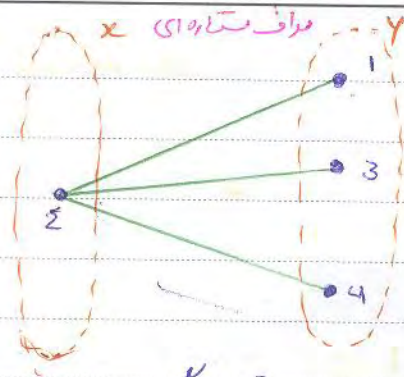 x گراف ستاره‌ای y
1
3
2
4